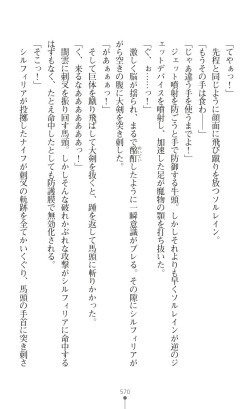 「てやぁっ！」
先程と同じように顔面に飛び蹴りを放つソルレイン。
「もうその手は食わ――」
「じゃあ違う手を使うまでよ！」
ジェット噴射を防ごうと手で防御する牛頭。しかしそれよりも早くソルレインが逆のジ
ェットデバイスを噴射し、加速した足が魔物の顎を打ち抜いた。
「ぐ、お……っ！」
激しく脳が揺られ、まるで酩酊したように一瞬意識がブレる。その隙にシルフィリアが
がら空きの腹に大剣を突き刺した。
「があぁぁぁっ！」
そして巨体を蹴り飛ばして大剣を抜くと、踵を返して馬頭に斬りかかった。
「く、来るなああああああぁっ！」
闇雲に刺叉を振り回す馬頭。しかしそんな破れかぶれな攻撃がシルフィリアに命中する
はずもなく、たとえ命中したとしても防護膜で無効化される。
「そこっ！」
シルフィリアが投擲したナイフが刺叉の軌跡を全てかいくぐり、馬頭の手首に突き刺さ
570